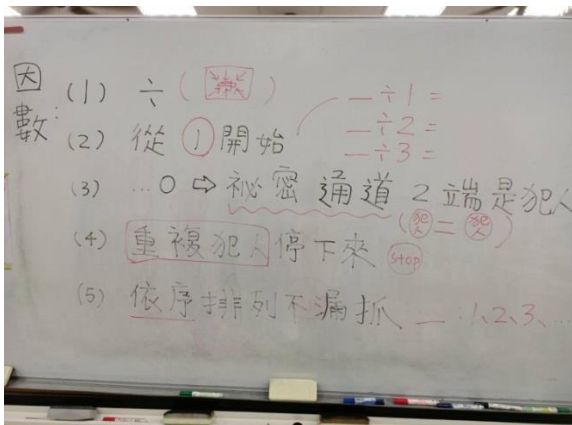 因數：
(1) ÷ ( )
(2) 從 1 開始
__ ÷ 1 =
__ ÷ 2 =
__ ÷ 3 =
(3) …0 ⇨ 祕密通道 2 端是犯人
(犯人 = 犯人)
(4) 重複犯人停下來 stop
(5) 依序排列不漏抓 __ 1、2、3、…